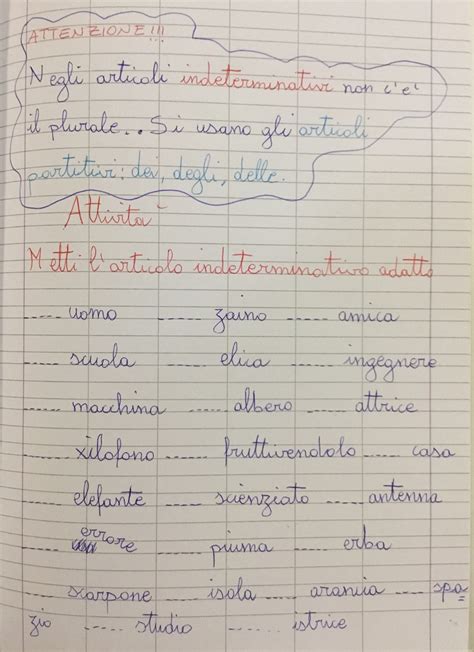 ATTENZIONE!!!
Negli articoli indeterminativi non c'è
il plurale... Si usano gli articoli
partitivi: dei, degli, delle.
Attività
Metti l'articolo indeterminativo adatto
..... uomo ..... zaino ..... amica
..... scuola ..... elica ..... ingegnere
..... macchina ..... albero ..... attrice
..... xilofono ..... fruttivendolo ..... casa
..... elefante ..... scienziato ..... antenna
..... errore ..... piuma ..... erba
..... scarpone ..... isola ..... arancia ..... spa=
zio ..... studio ..... istrice